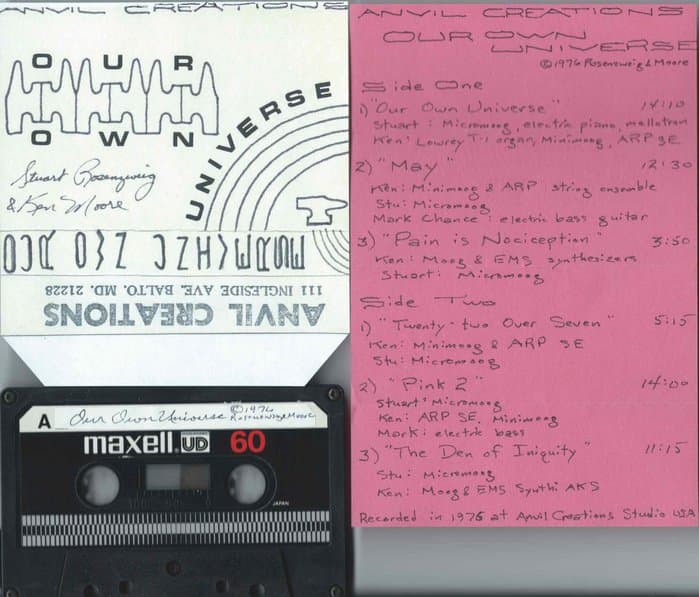 ANVIL CREATIONS
OUR
OWN
UNIVERSE
Stuart Rosenzweig
& Ken Moore
OUR OWN UNIVERSE
111 INGLESIDE AVE. BALTO. MD. 21228
ANVIL CREATIONS
A
Our Own Universe ©1976
Rosenzweig & Moore
maxell UD 60
JAPAN
ANVIL CREATIONS
OUR OWN
UNIVERSE
©1976 Rosenzweig & Moore
Side One
1) "Our Own Universe" 14:10
Stuart: Micromoog, electric piano, mellotron
Ken: Lowrey T-1 organ, Minimoog, ARP SE
2) "May" 12:30
Ken: Minimoog & ARP string ensemble
Stu: Micromoog
Mark Chance: electric bass guitar
3) "Pain is Nociception" 3:50
Ken: Moog & EMS synthesizers
Stuart: Micromoog
Side Two
1) "Twenty-two Over Seven" 5:15
Ken: Minimoog & ARP SE
Stu: Micromoog
2) "Pink 2" 14:00
Stuart: Micromoog
Ken: ARP SE, Minimoog
Mark: electric bass
3) "The Den of Iniquity" 11:15
Stu: Micromoog
Ken: Moog & EMS Synthi AKS
Recorded in 1976 at Anvil Creations Studio USA